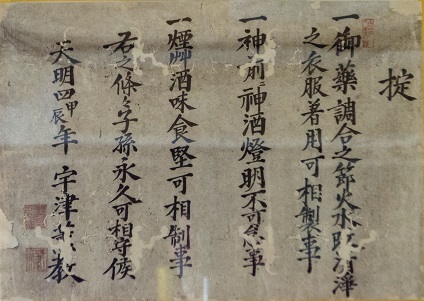 掟
一御藥調合之節火水改清淨
之衣服著用可相製事
一神前神酒燈明不可怠事
一煙艸酒味食堅可相制事
右之條々子孫永久可相守候
天明四甲辰年 宇津 教